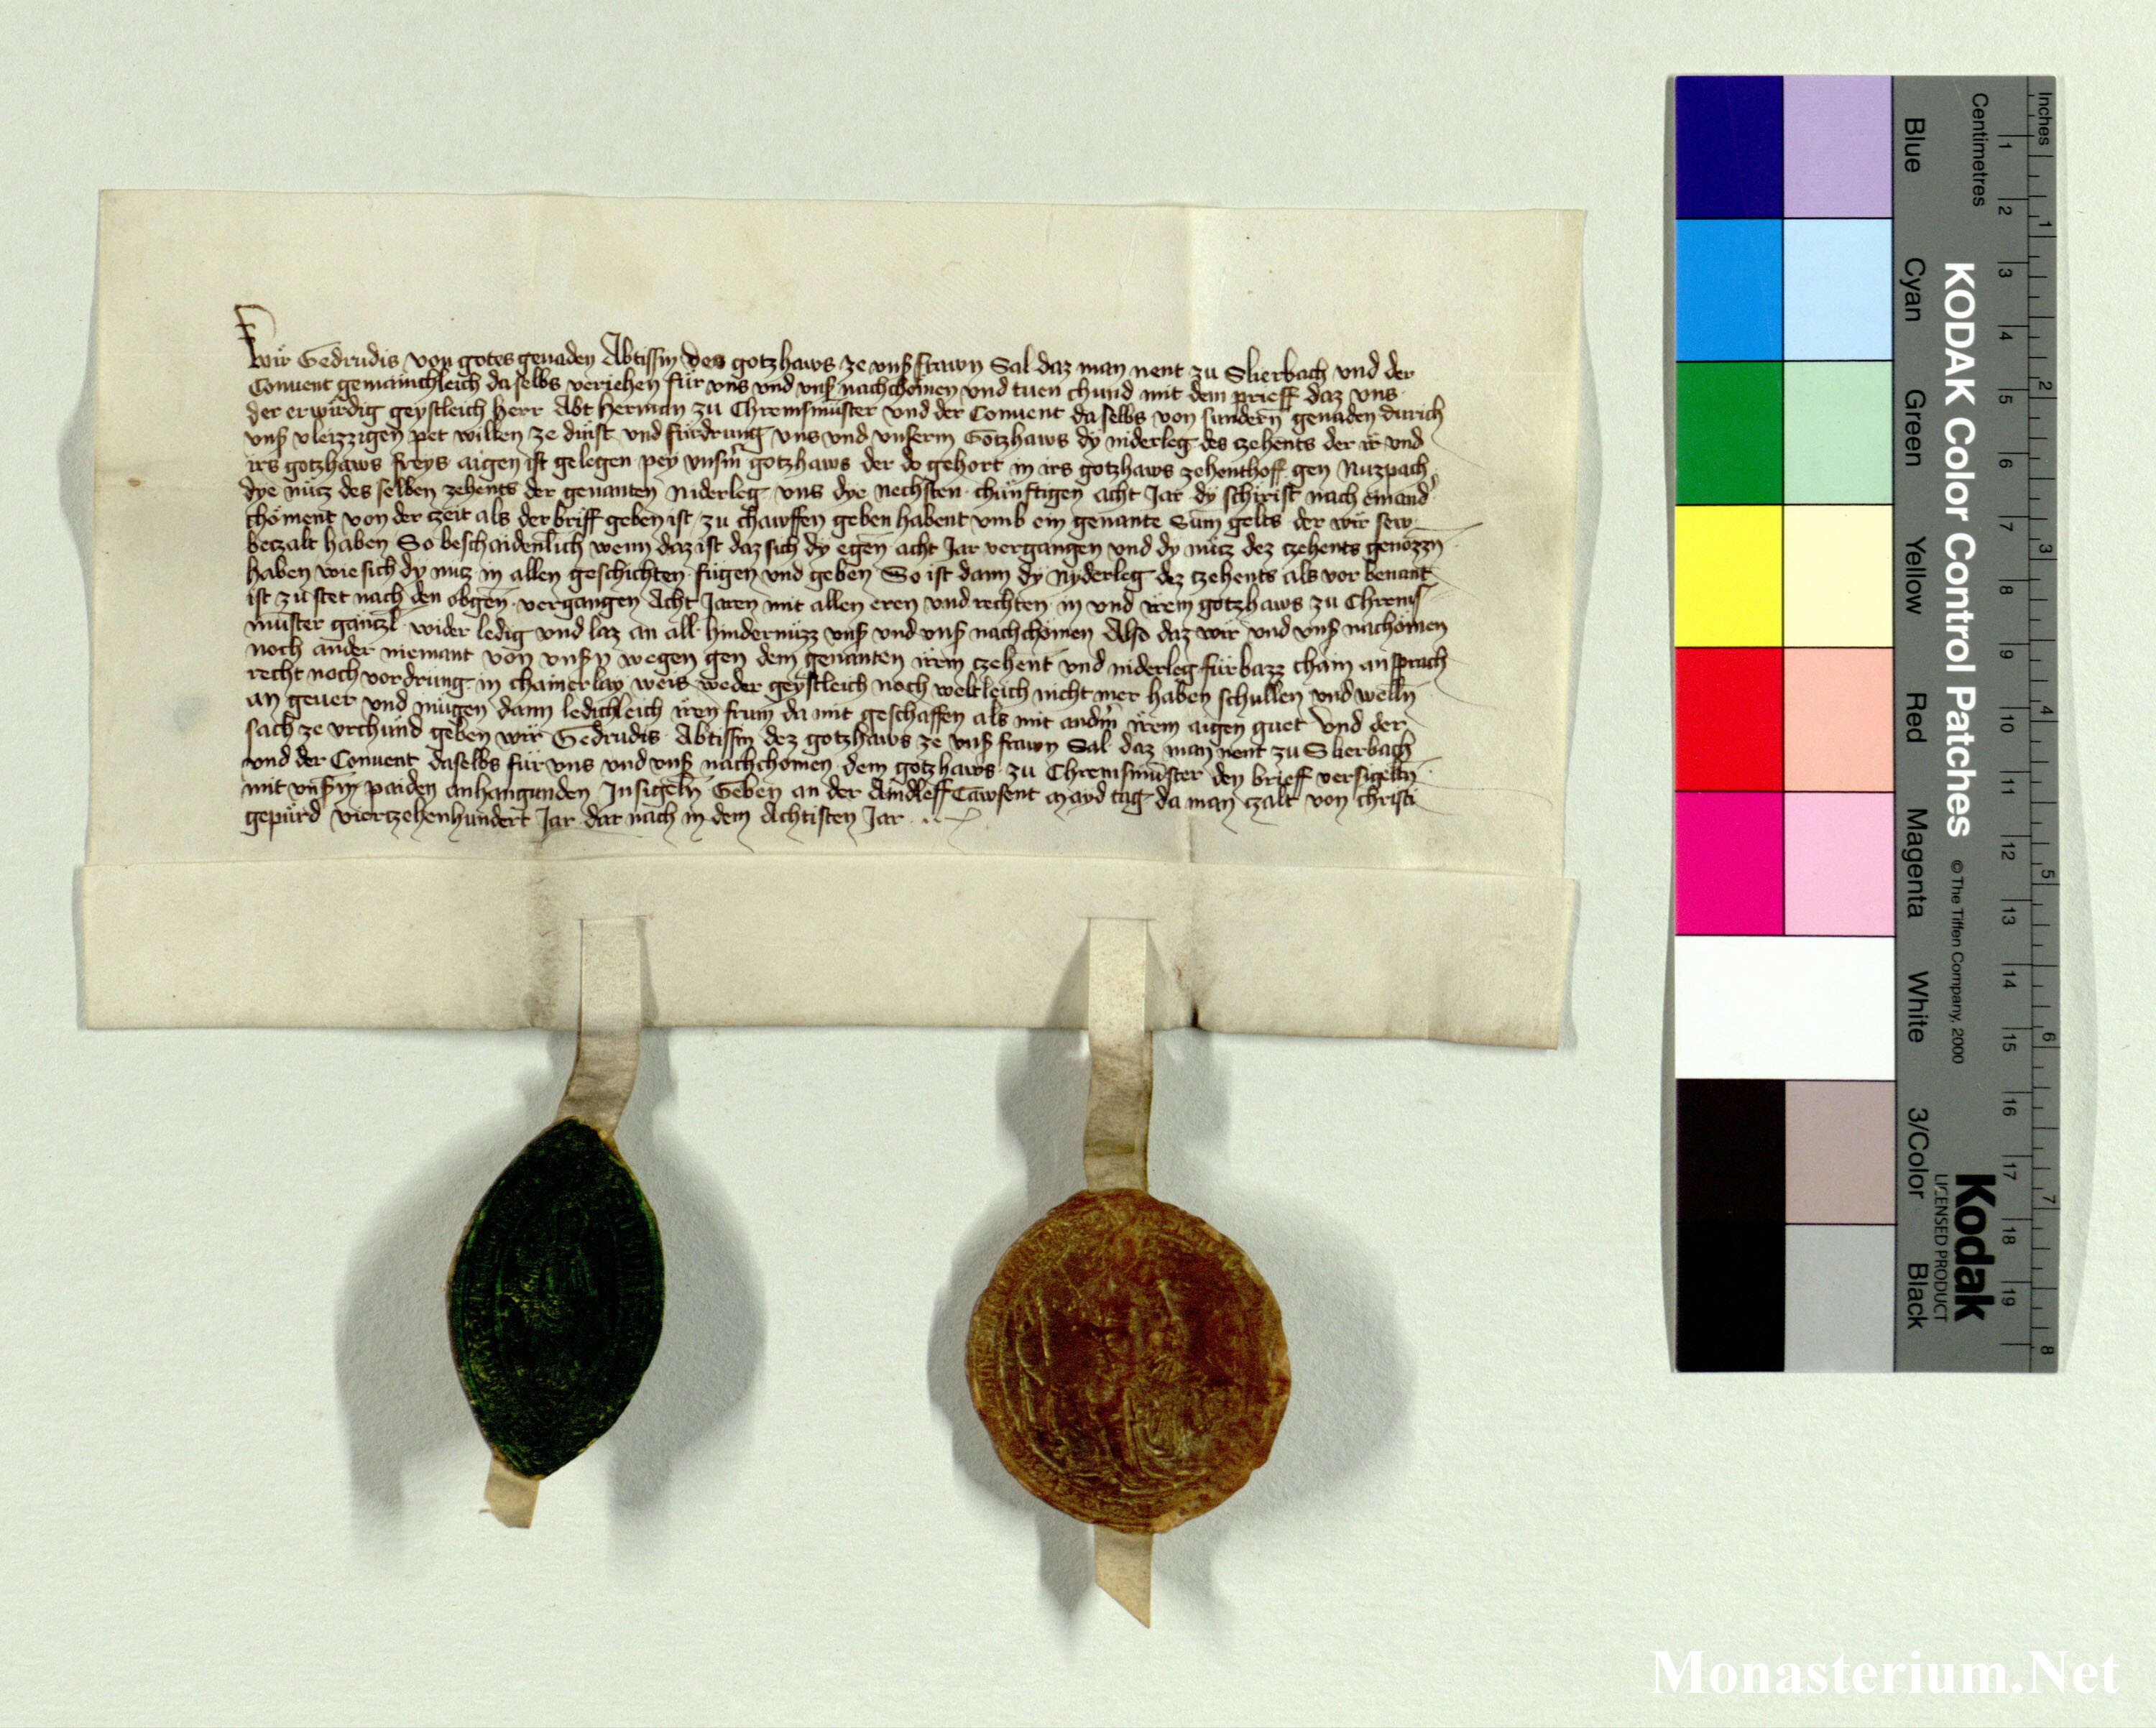 Wir Gedrudis von gotes genaden Abtissin des gotzhaws ze vnß frawn Sal daz man nent zu Slierbach vnd der
Conuent gemainchleich daselbs veriehen für vns vnd vnß nachchömen vnd tuen chund mit dem prieff daz vns
der erwirdig geystleich herr Abt Herman zu Chremsmünster vnd der Conuent daselbs von sundern genaden durich
vnß vleizzigen pet willen ze dinst vnd fürdrung vns vnd vnserm Gotzhaws dy niderleg des zehents der ir vnd
irs gotzhaws freys aigen ist gelegen pey vnsm gotzhaws der do gehort in irs gotzhaws zehenthoff gen Nuzpach
dye nücz des selben zehents der genanten niderleg vns dye nechsten chünftigen acht Jar dy schirist nach einand
chöment von der czeit als der briff geben ist zu chawffen geben habent vmb ein genante Sum gelts der wir sew
beczalt haben So beschaidenlich wenn daz ist daz sich dy egen acht Jar vergangen vnd dy nücz dez czehents genozzn
haben wie sich dy nucz in allen geschichten fügen vnd geben So ist dann dy Nyderleg dez czehents als vor benant
ist zu stet nach den obgen vergangen Acht Jaren mit allen eren vnd rechten in vnd irem gotzhaws zu Chrems
münster gäntzl wider ledig vnd laz an all hindernüzz vnß vnd vnß nachchömen Also daz wir vnd vnß nachömen
noch ander niemant von vnßn wegen gen dem genanten irem czehent vnd niderleg fürbazz chain ansprach
recht noch vordrung in chainerlay weis weder geystleich noch weltleich nicht mer haben schullen vnd welln
an geuer vnd mügen dann ledichleich iren frum da mit geschaffen als mit andm irem aigen guet Vnd der
sach ze vrchünd geben wir Gedrudis Abtissin dez gotzhaws ze vnß frawn Sal daz man nent zu Slierbach
vnd der Conuent daselbs für vns vnd vnß nachchomen dem gotzhaws zu Chremsmünster den brieff versigeltn
mit vnßm paiden anhangunden Insigeln Geben an der Aindleff Tawsent mayd tag da man czalt von christi
gepürd vierczehenhundert Jar dar nach in dem Achtisten Jar
Inches
Centimetres
1 2 3 4 5 6 7 8 9 10 11 12 13 14 15 16 17 18 19
1 2 3 4 5 6 7 8
KODAK Color Control Patches © The Tiffen Company, 2000
Kodak
LICENSED PRODUCT
Blue Cyan Green Yellow Red Magenta White 3/Color Black
Monasterium.Net